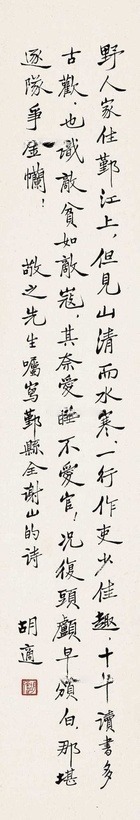 野人家住鄞江上，但見山清而水寒．一行作吏少佳趣，十年讀書多
古歡．也識敵貧如敵寇，其奈愛睡不愛官！況復頭顱早頒白，那堪
逐隊爭金𤄵！　敬之先生囑寫鄞縣全謝山的詩
胡適